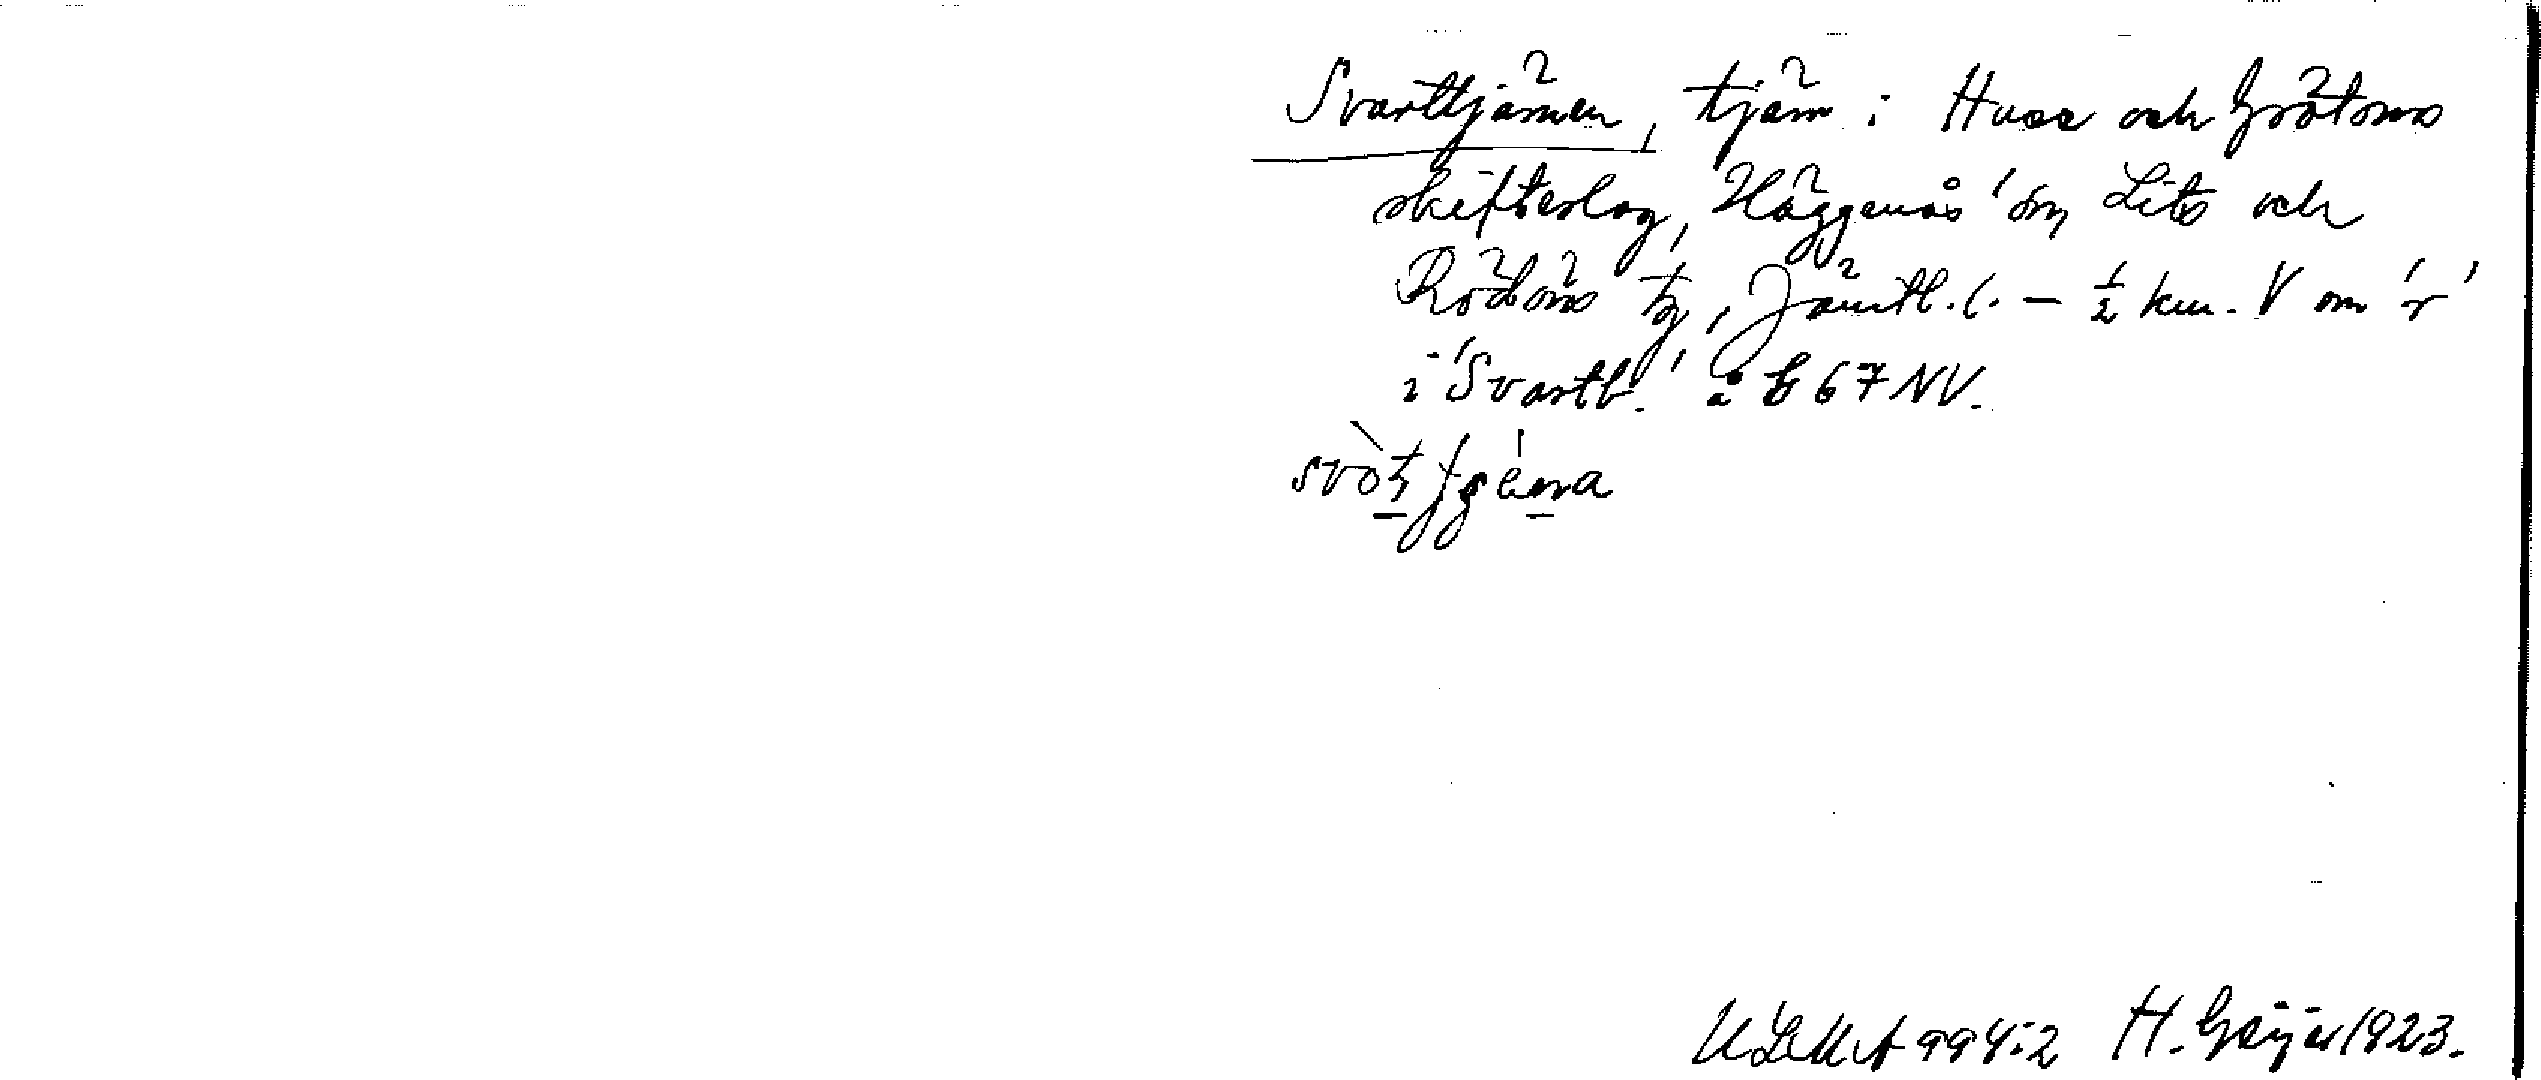 Svarttjärnen, tjärn i Huse och Grötoms
skifteslag, Häggenås sn, Lits och
Rödöns tg, Jämtl. l. — ½ km. V om 'r'
i 'Svarttr.' å b 67 NV.
svòt
ULMA 994:2 H. Geijer 1923.